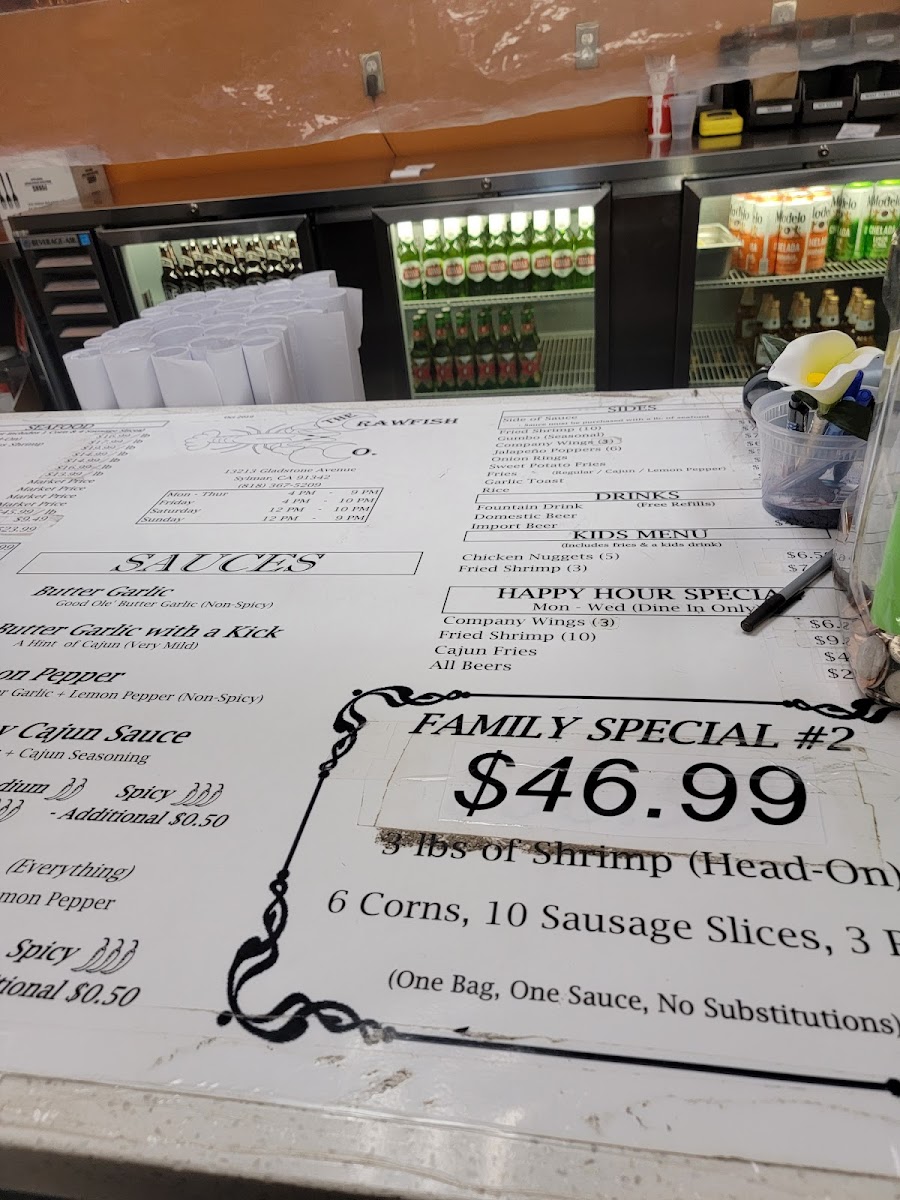 BEVERAGE-AIR
Modelo
CHELADA
SEAFOOD
$16.99 / lb
$14.99 / lb
$16.99 / lb
Market Price
Market Price
Market Price
Market Price
$9.49
$23.99
THE RAWFISH
CO.
13213 Gladstone Avenue
Sylmar, CA 91342
(818) 367-5209
Mon - Thur 4 PM - 9 PM
Friday 4 PM - 10 PM
Saturday 12 PM - 10 PM
Sunday 12 PM - 9 PM
SAUCES
Butter Garlic
Good Ole' Butter Garlic (Non-Spicy)
Butter Garlic with a Kick
A Hint of Cajun (Very Mild)
on Pepper
r Garlic + Lemon Pepper (Non-Spicy)
y Cajun Sauce
+ Cajun Seasoning
dium Spicy
- Additional $0.50
(Everything)
mon Pepper
Spicy
tional $0.50
SIDES
Side of Sauce
Sauce must be purchased with a lb. of seafood
Fried Shrimp (10)
Gumbo (Seasonal)
Company Wings (3)
Jalapeño Poppers (6)
Onion Rings
Sweet Potato Fries
Fries - (Regular / Cajun / Lemon Pepper)
Garlic Toast
Rice
DRINKS
Fountain Drink (Free Refills)
Domestic Beer
Import Beer
KIDS MENU
(Includes fries & a kids drink)
Chicken Nuggets (5) $6.5
Fried Shrimp (3) $7
HAPPY HOUR SPECIA
Mon - Wed (Dine In Only
Company Wings (3) $6.
Fried Shrimp (10) $9.
Cajun Fries $4
All Beers $2
FAMILY SPECIAL #2
$46.99
3 lbs of Shrimp (Head-On)
6 Corns, 10 Sausage Slices, 3 P
(One Bag, One Sauce, No Substitutions)